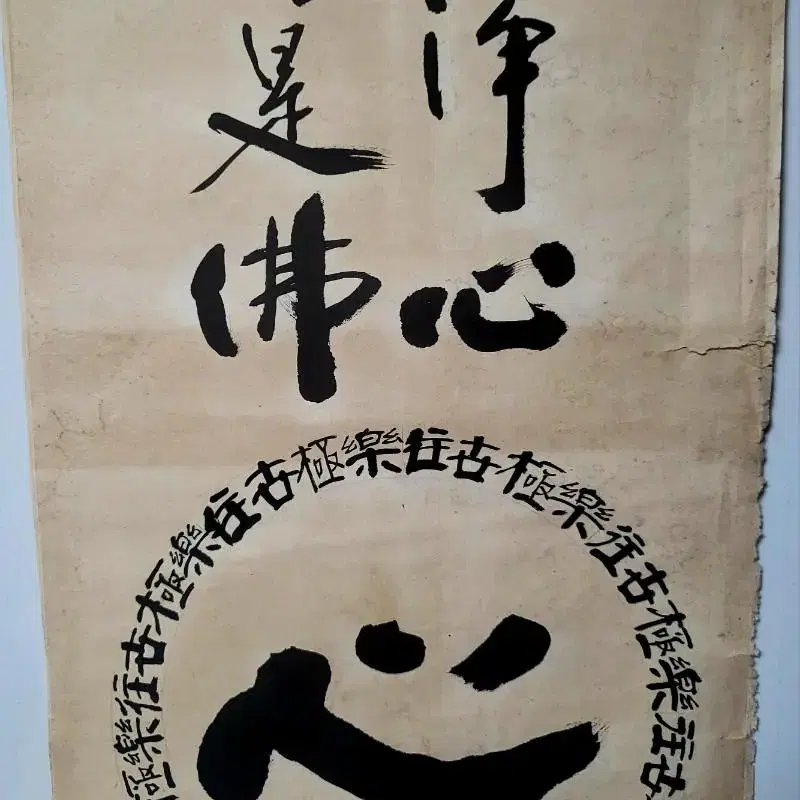 淨心
是佛
極樂往古極樂往古極樂往古極樂往古極樂往古
心